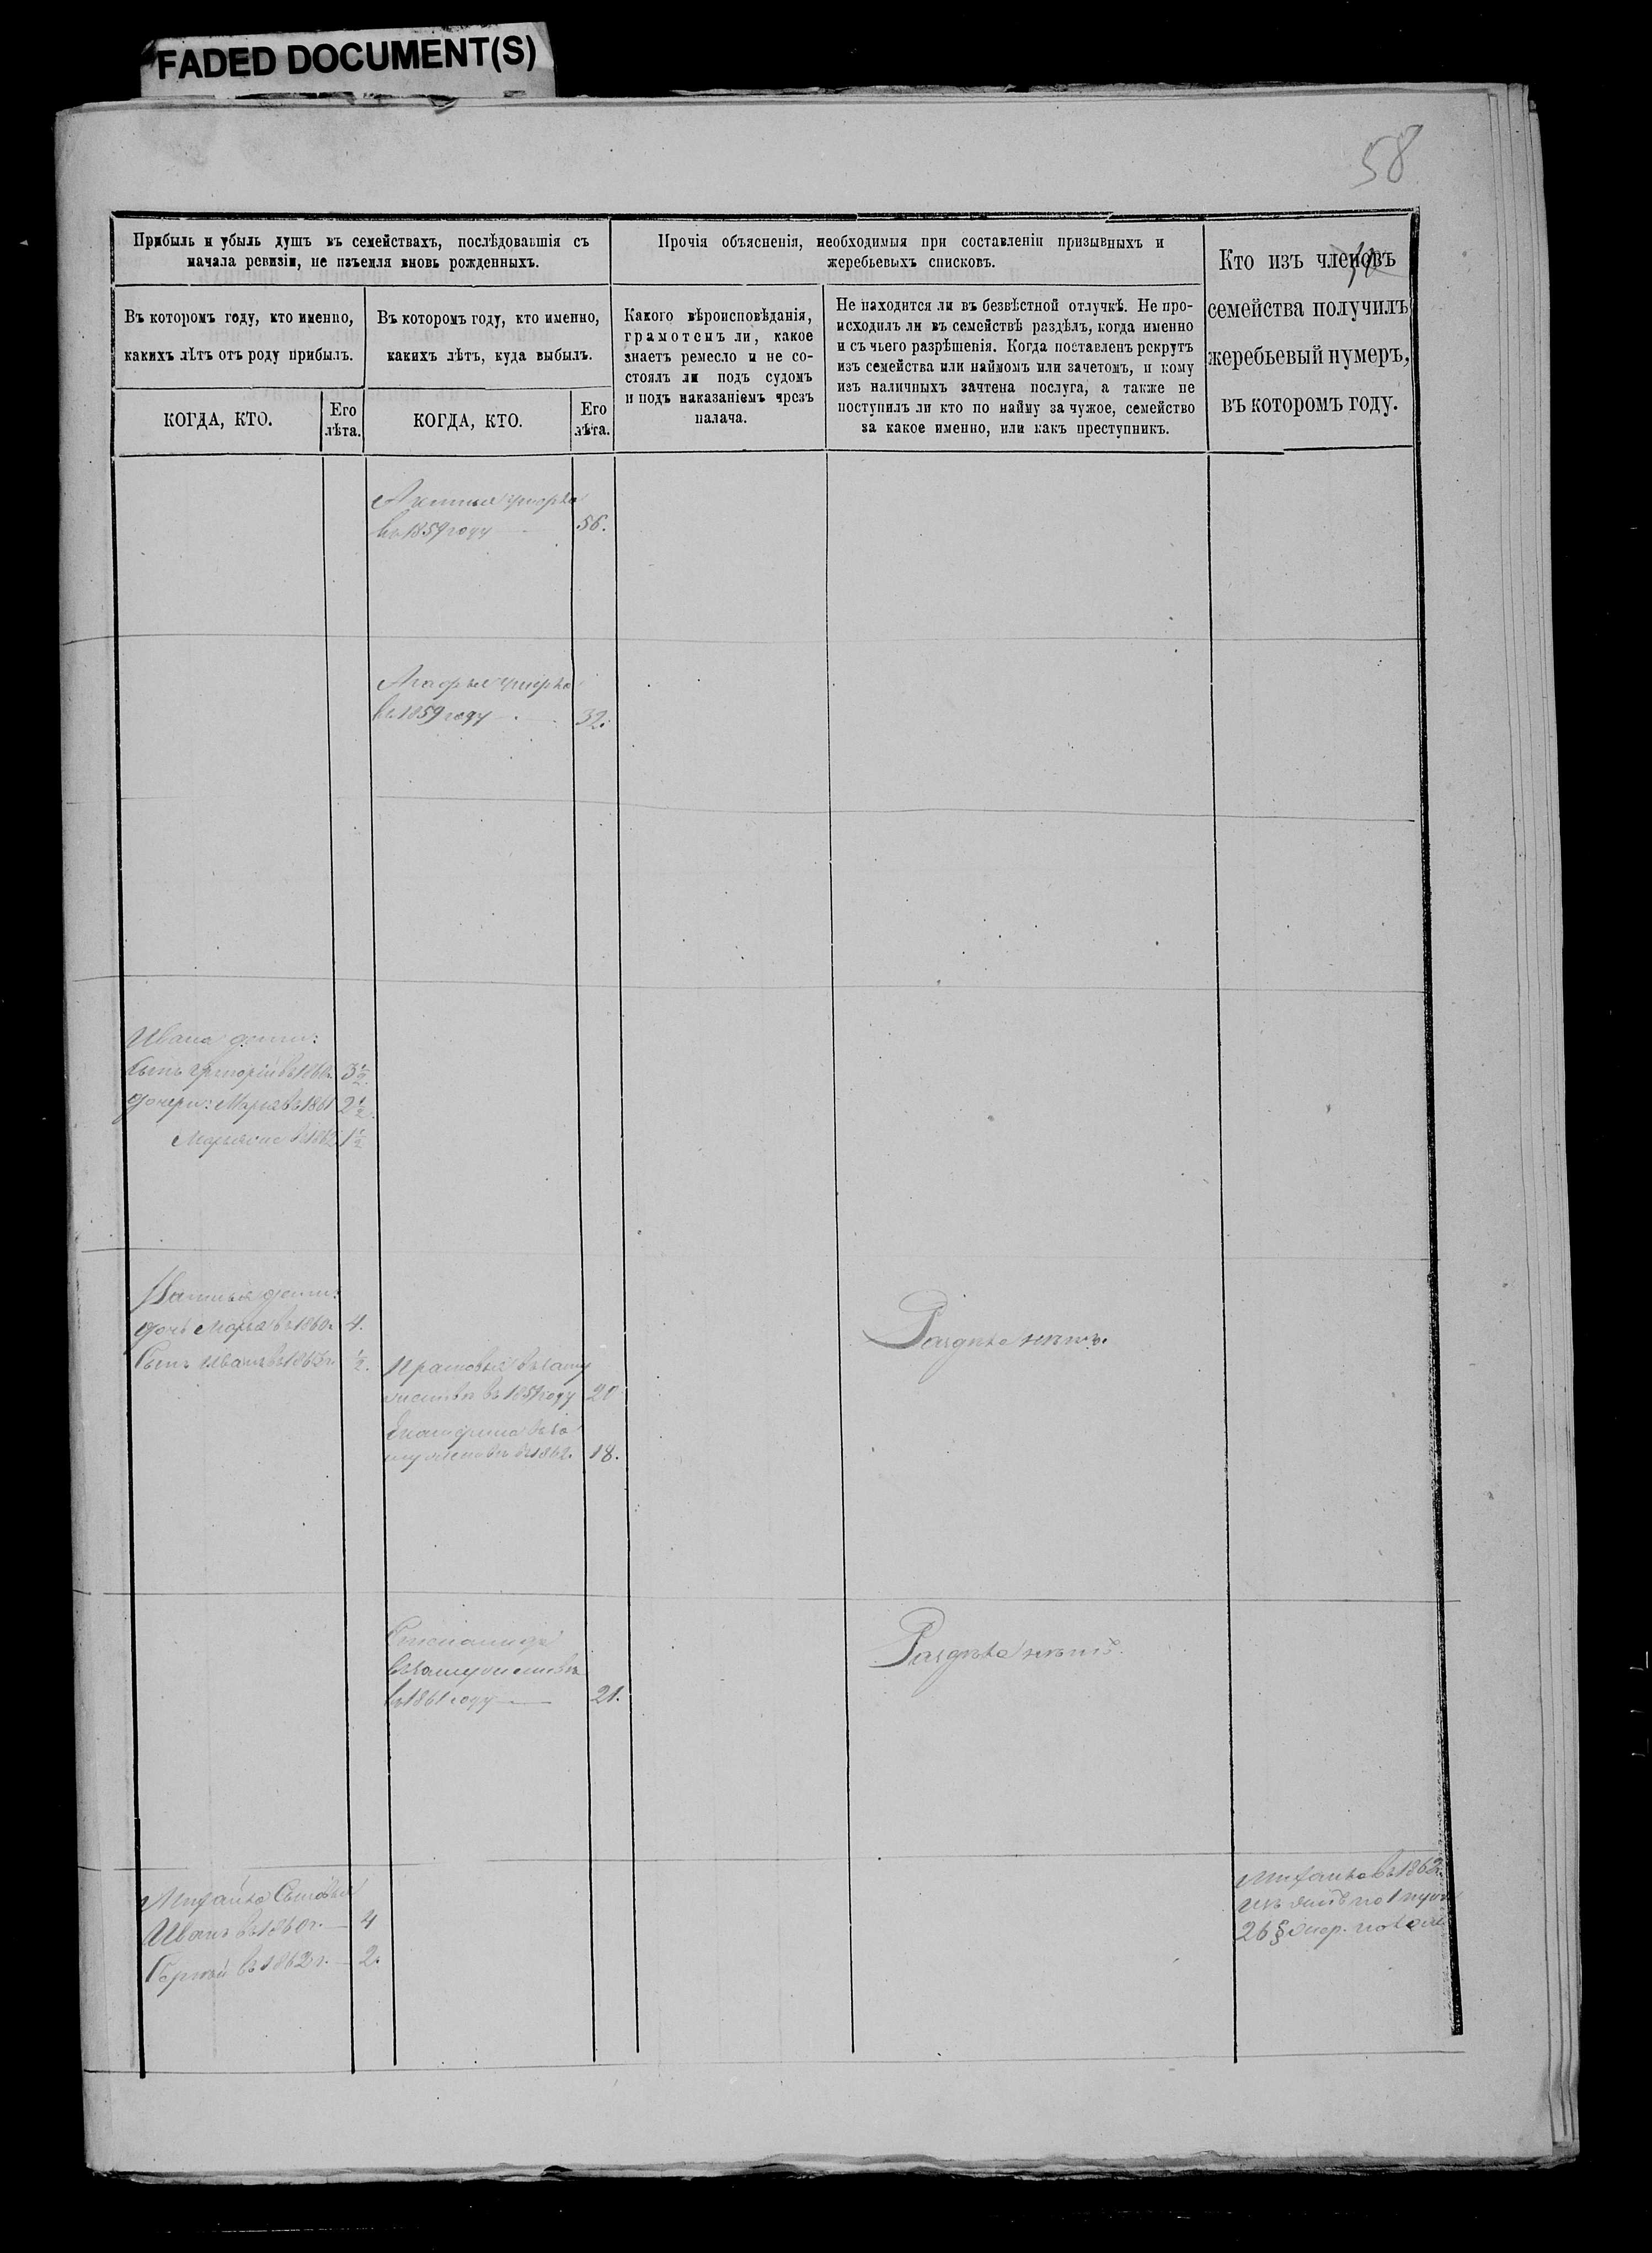 FADED DOCUMENT(S)
58
Прибыль и убыль душъ въ семействахъ, послѣдовавшія съ
начала ревизіи, не изъемля вновь рожденныхъ.
Прочія объясненія, необходимыя при составленіи призывныхъ и
жеребьевыхъ списковъ.
Кто изъ членовъ
семейства получилъ
жеребьевый нумеръ,
въ которомъ году.
Въ которомъ году, кто именно,
какихъ лѣтъ отъ роду прибылъ.
Въ которомъ году, кто именно,
какихъ лѣтъ, куда выбылъ.
Какого вѣроисповѣданія,
грамотенъ ли, какое
знаетъ ремесло и не со-
стоялъ ли подъ судомъ
и подъ наказаніемъ чрезъ
палача.
Не находится ли въ безвѣстной отлучкѣ. Не про-
исходилъ ли въ семействѣ раздѣлъ, когда именно
и съ чьего разрѣшенія. Когда поставленъ рекрутъ
изъ семейства или наймомъ или зачетомъ, и кому
изъ наличныхъ зачтена послуга, а также не
поступилъ ли кто по найму за чужое, семейство
за какое именно, или какъ преступникъ.
КОГДА, КТО.
Его
лѣта.
КОГДА, КТО.
Его
лѣта.
умерла
въ 1859 году 56.
Агафья умерла
въ 1859 году 32.
Ивана дети:
Сынъ Григорій въ 1860 г. 3½
дочери: Марья въ 1861 2½
въ 1862 1½
дети:
дочь Марья въ 1860 г. 4.
Сынъ Иванъ въ 1863 г. ½.
Раздѣла нѣтъ.
Прасковья въ заму
жествѣ въ 1859 году 20
Екатерина въ за
мужествѣ въ 1862. 18.
Степанида
въ замужествѣ
въ 1861 году 21.
Раздѣла нѣтъ.
Михайла Сыновья
Иванъ въ 1860 г. 4
Сергѣй въ 1862 г. 2.
Михайла въ 1863
26 §